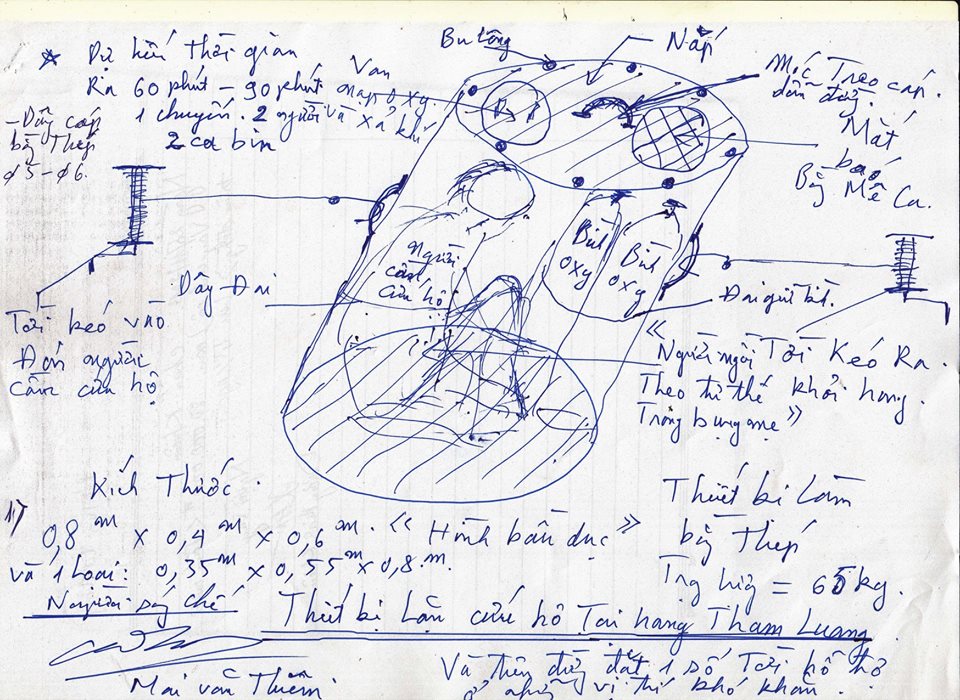 * Dự kiến thời gian
Ra 60 phút – 90 phút
1 chuyến. 2 người và
2 ca bin
Van
nạp oxy.
xả khí
Bu lông
Nắp
Móc Treo cáp
dẫn đg.
Mắt
báo
Bg Mê Ca.
– Dây cáp
bg Thép
ø5 – ø6.
Dây – Đai
Người
cần
cứu hộ
Bình
oxy
Bình
oxy
Đai giữ bì.
Tời kéo vào
Đón người
cần cứu hộ
Tời Kéo Ra.
khỏi hang.
« Người ngồi
Theo tư thế
Trong bụng mẹ »
Kích Thước.
1)
0,8 m x 0,4 m x 0,6 m. « Hình bầu dục »
và 1 loại: 0,35 m x 0,55 m x 0,8 m.
Thiết bị Làm
bg Thép
Trg lượg = 65 kg.
Người sáng chế
Thiết bị Lặn cứu hộ Tại hang Tham Luang.
Mai văn
Và trên đg đặt 1 số Tời hỗ trợ
ở những vị trí khó khăn.